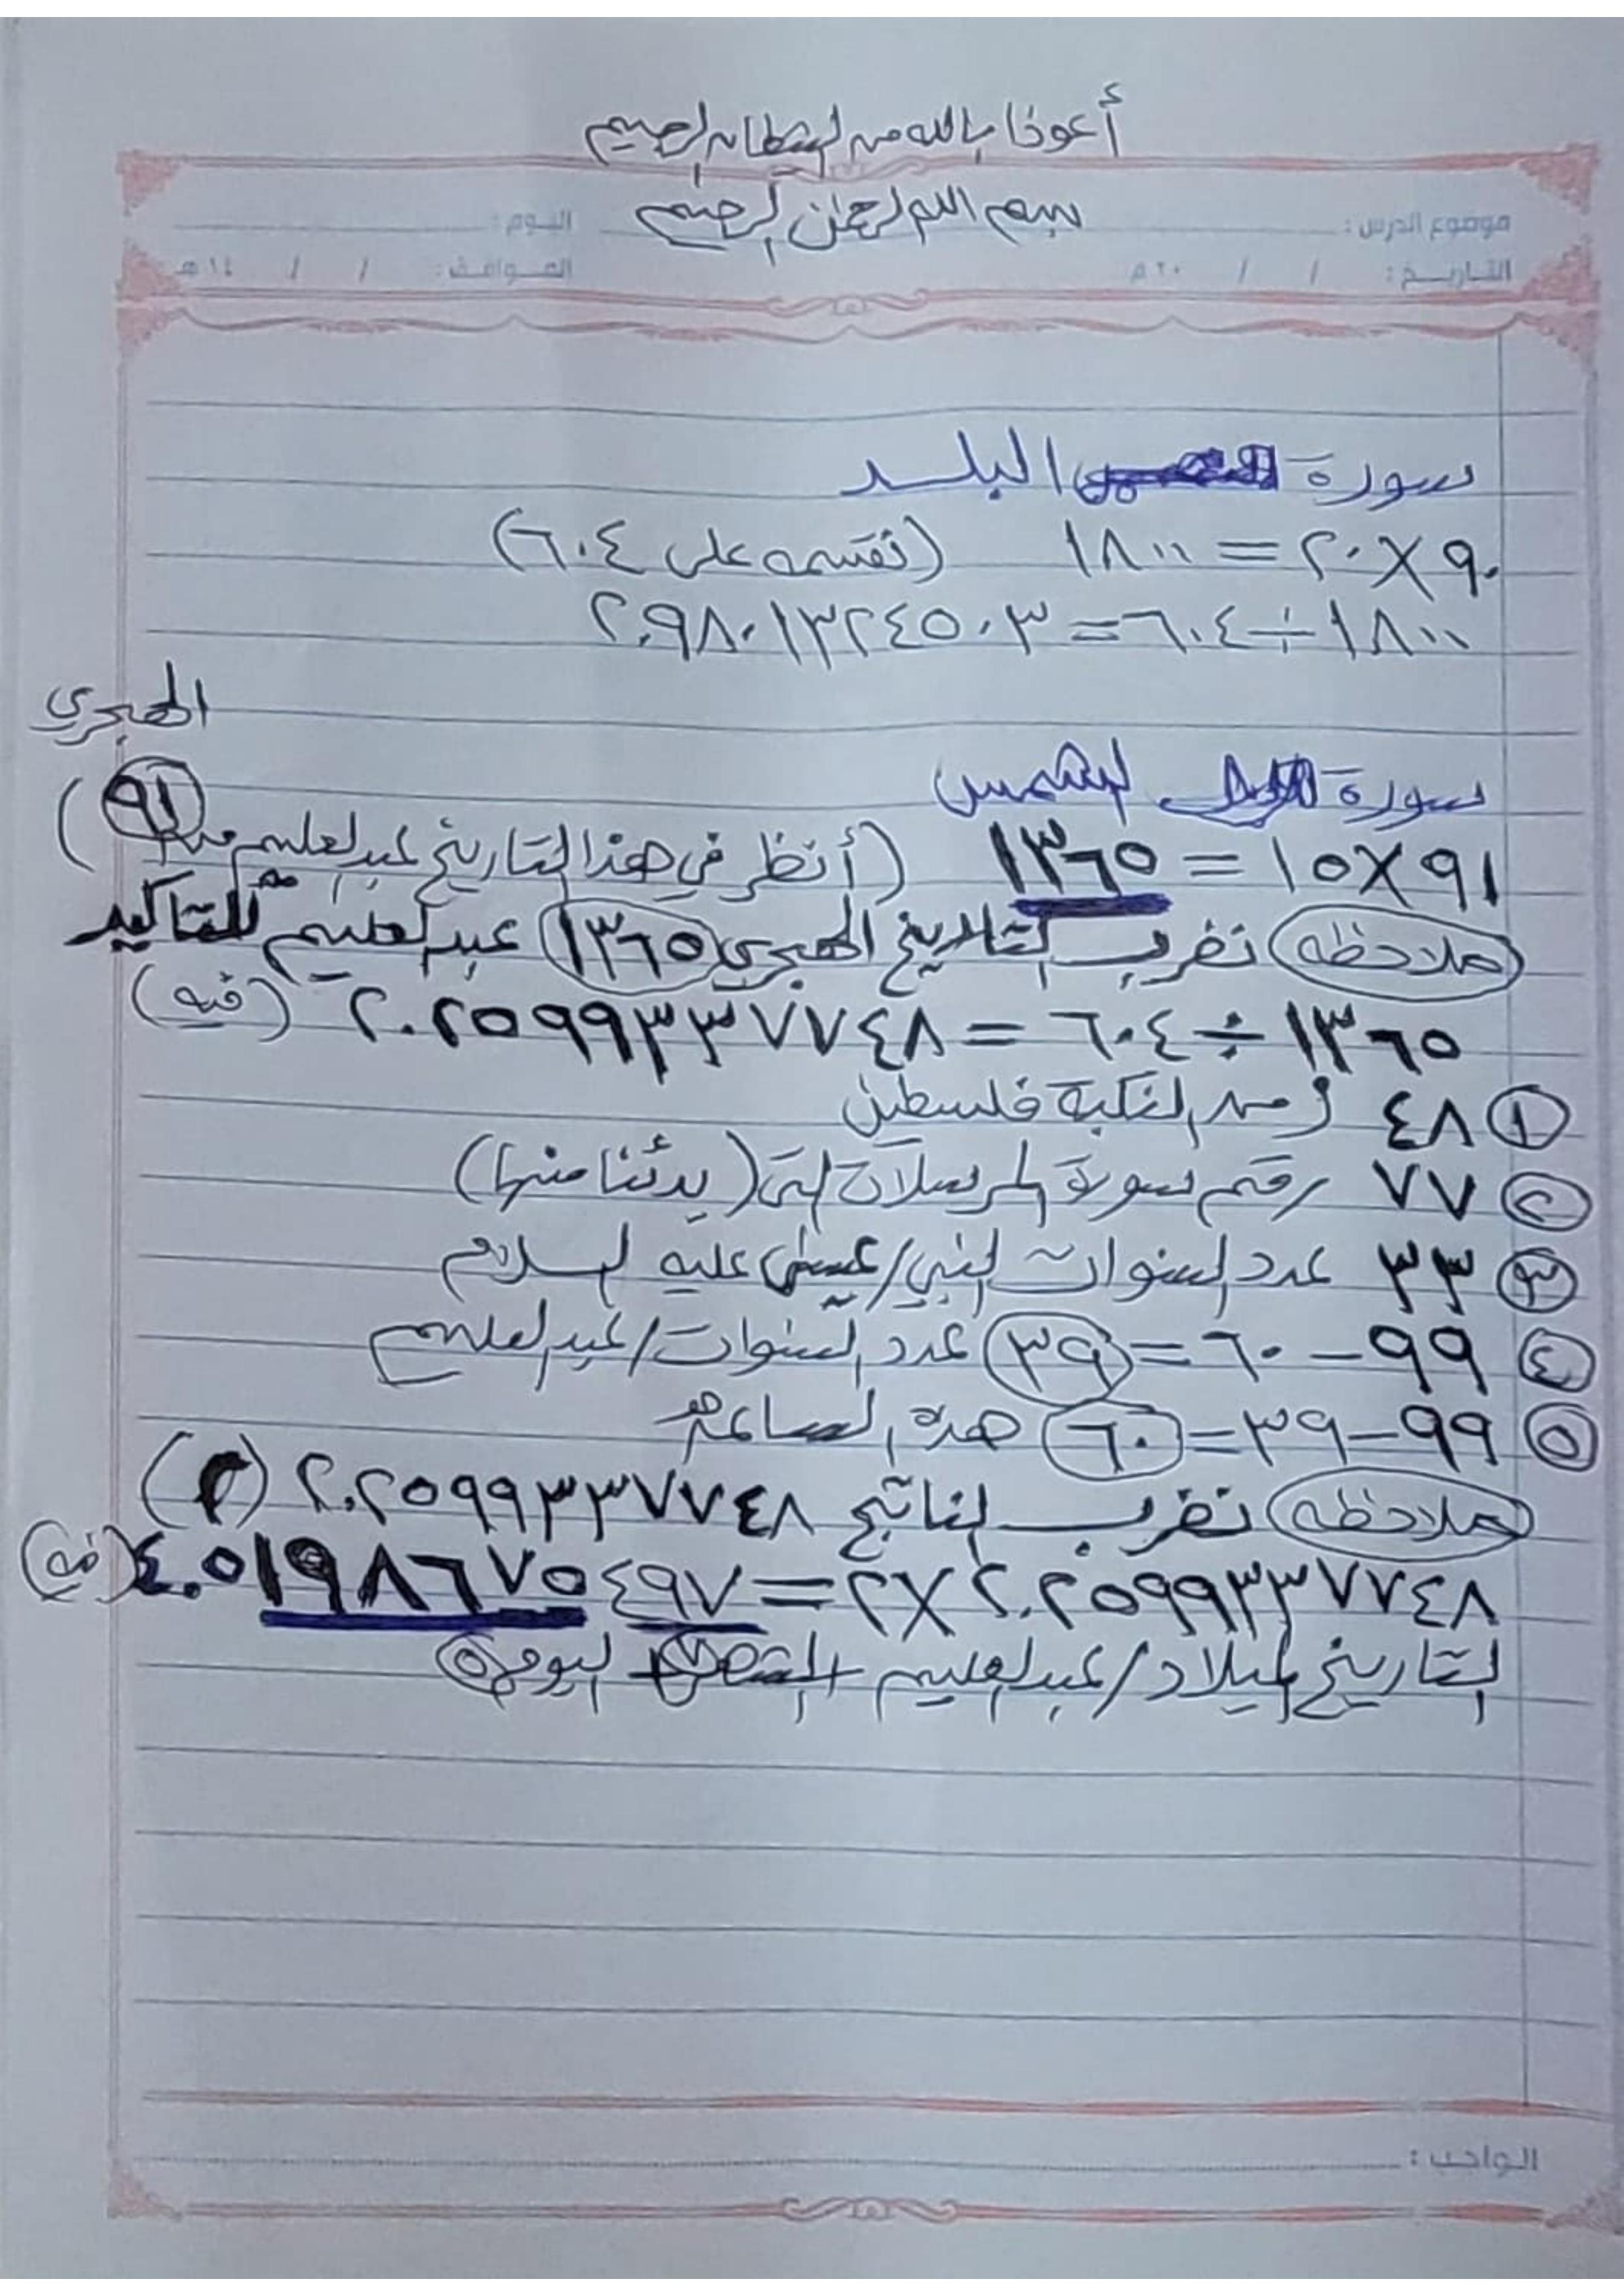 أعوذا بالله من الشيطان الرجيم
بسم الله الرحمن الرحيم
موضوع الدرس : اليوم :
التاريخ : / / ٢٠ م الموافق : / / ١٤ هـ
سورة البلد
٩٠ × ٢٠ = ١٨٠٠ (نقسمه على ٦٠٤)
١٨٠٠ ÷ ٦٠٤ = ٢.٩٨٠١٣٢٤٥٠٣
الهجري
سورة الشمس
٩١ × ١٥ = ١٣٦٥ (أنظر في هذا التاريخ عبدالعليم من ٩١)
ملاحظه نضرب التاريخ الهجري ١٣٦٥ عبدالعليم للتاكيد
١٣٦٥ ÷ ٦٠٤ = ٢.٢٥٩٩٣٣٧٧٤٨ (فيه)
١ ٤٨ زمن النكبة فلسطين
٢ ٧٧ رقم سورة المرسلات التي (بدئنا منها)
٣ ٣٣ عدد السنوات النبي/عيسى عليه السلام
٤ ٩٩ − ٦٠ = ٣٩ عدد السنوات/عبدالعليم
٥ ٩٩ − ٣٩ = ٦٠ هذه الساعة
ملاحظه نضرب الناتج ٢.٢٥٩٩٣٣٧٧٤٨ (٢)
٢.٢٥٩٩٣٣٧٧٤٨ × ٢ = ٤.٥١٩٨٦٧٥٤٩٧ (فيه)
التاريخ الميلاد/عبدالعليم اليوم ٥
الواجب :